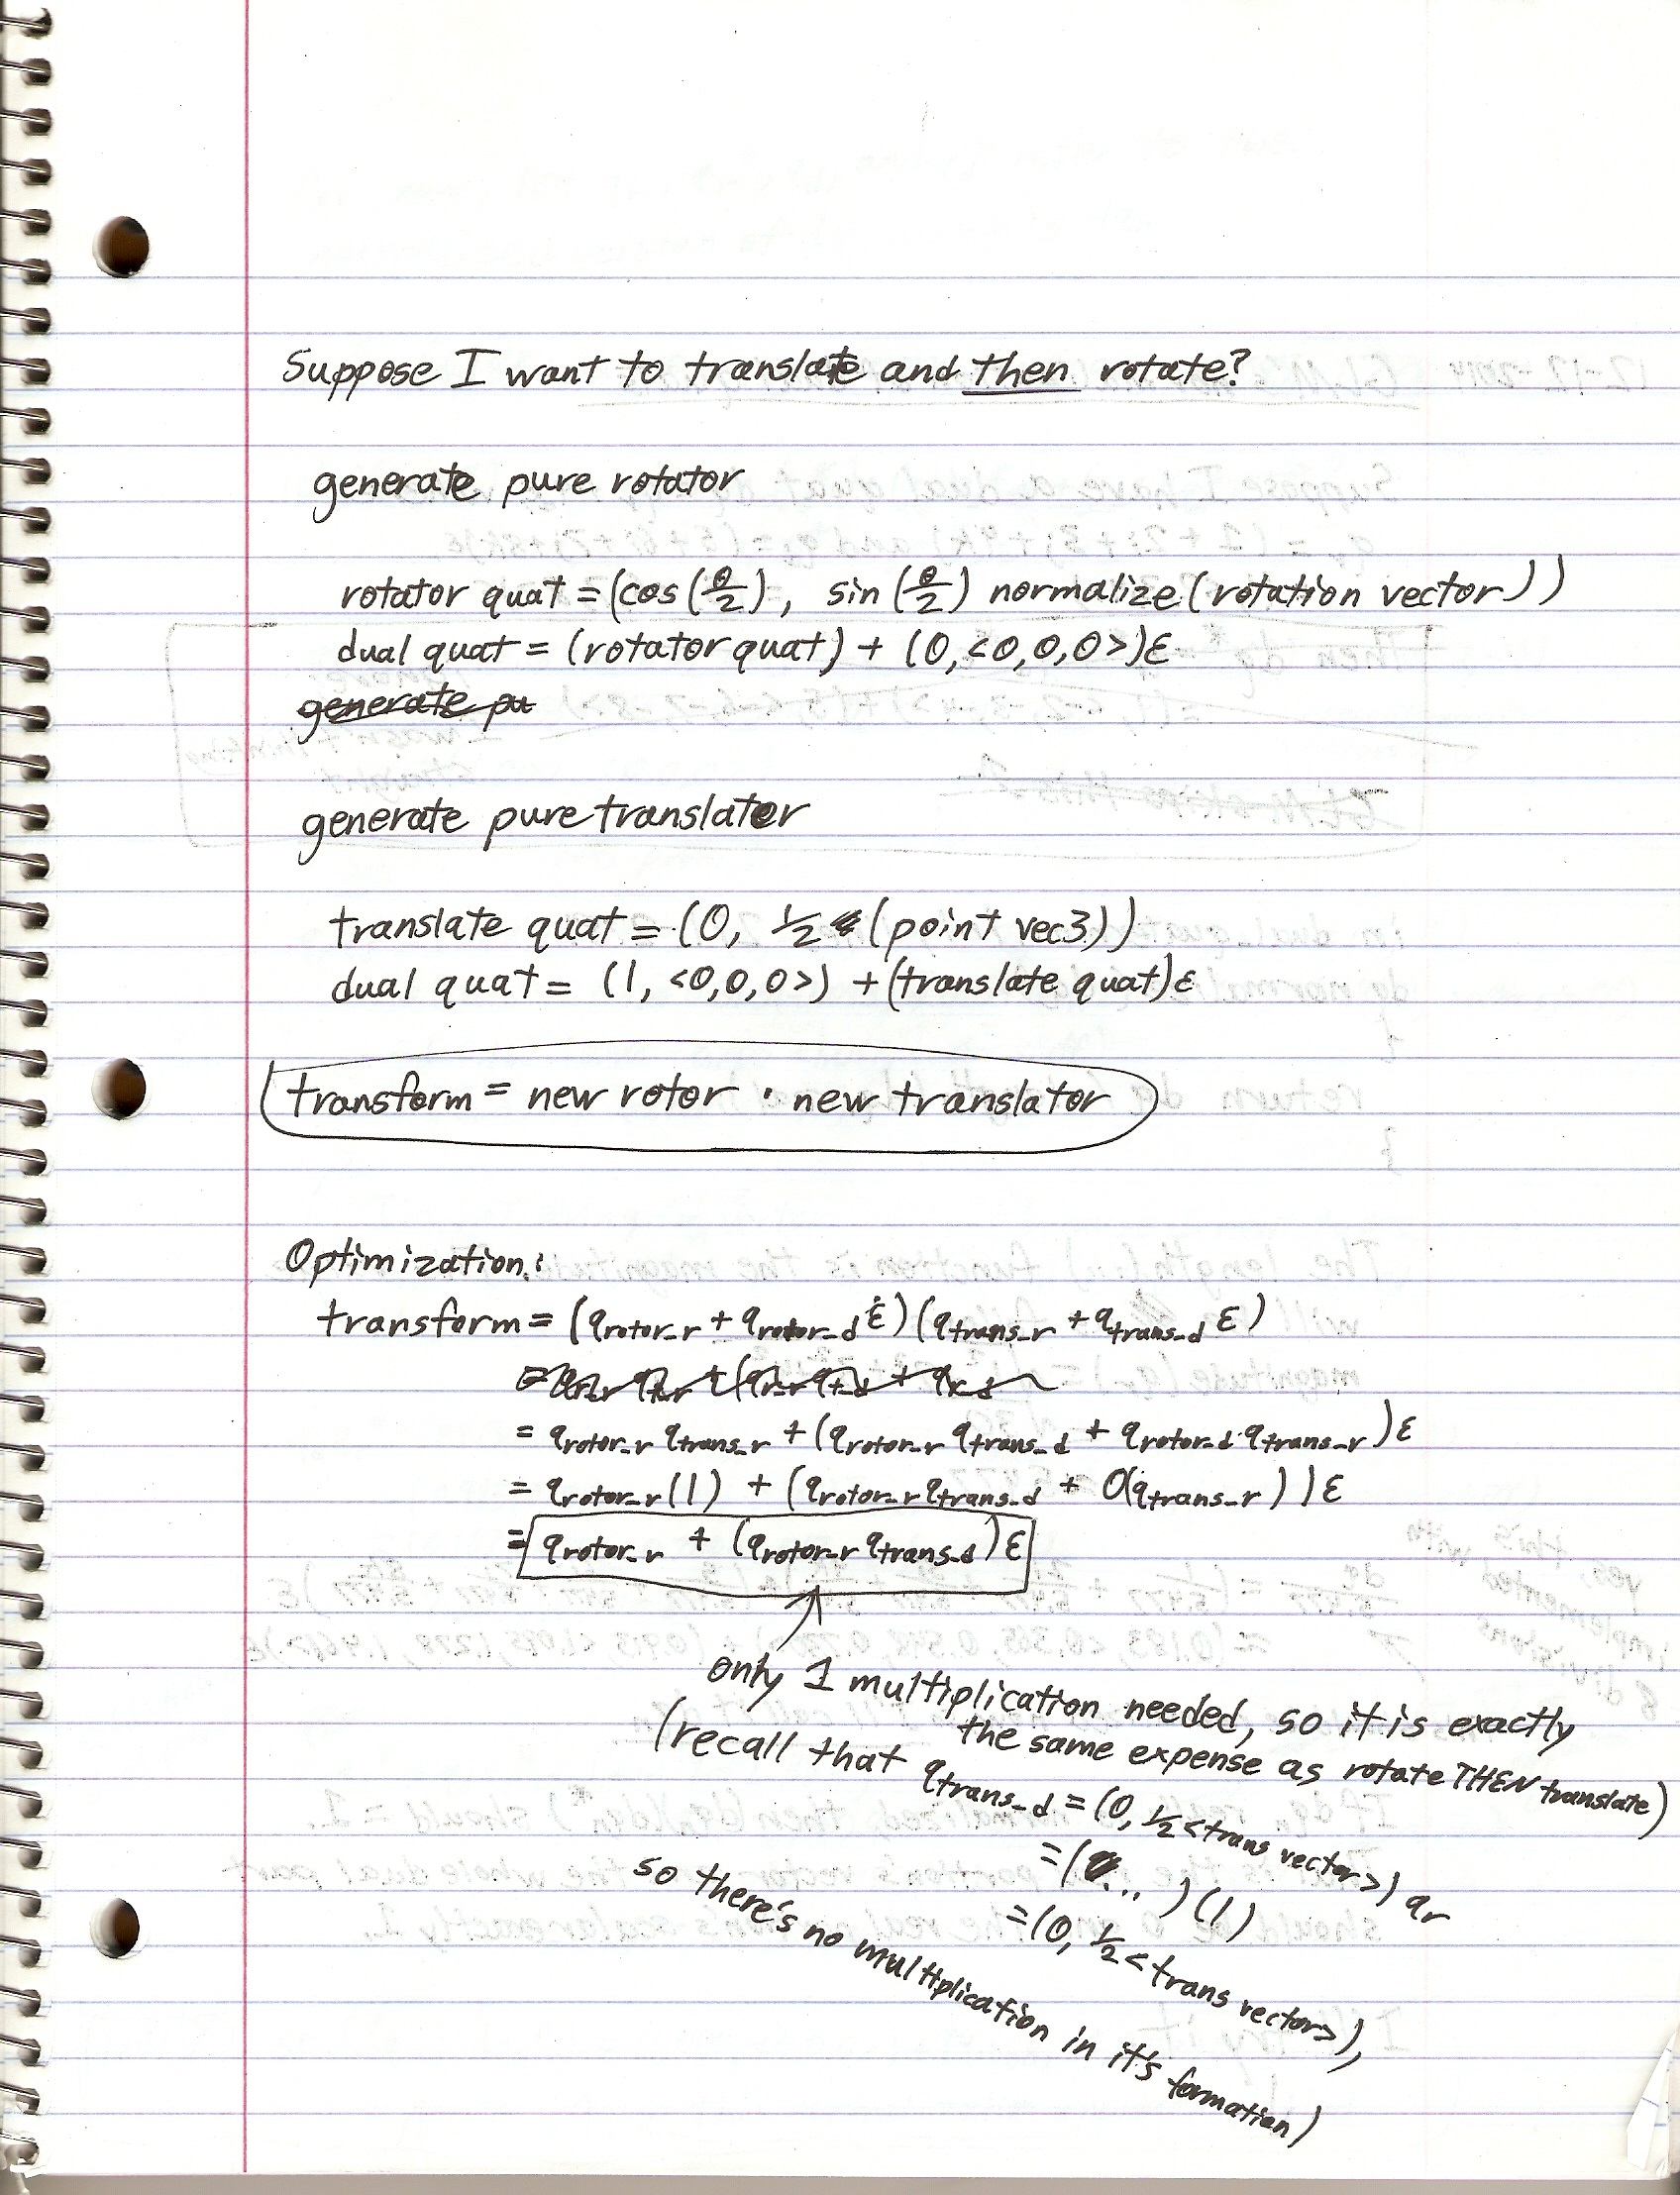 Suppose I want to translate and then rotate?
generate pure rotator
rotator quat = (cos(θ/2), sin(θ/2) normalize(rotation vector))
dual quat = (rotator quat) + (0,<0,0,0>)ε
generate pu
generate pure translator
translate quat = (0, 1/2 (point vec3))
dual quat = (1, <0,0,0>) + (translate quat)ε
transform = new rotor · new translator
Optimization:
transform = (q_rotor_r + q_rotor_d ε)(q_trans_r + q_trans_d ε)
= q_rotor_r q_trans_r + (q_rotor_r q_trans_d + q_rotor_d q_trans_r)ε
= q_rotor_r(1) + (q_rotor_r q_trans_d + 0(q_trans_r))ε
= q_rotor_r + (q_rotor_r q_trans_d)ε
only 1 multiplication needed, so it is exactly
the same expense as rotate THEN translate)
(recall that q_trans_d = (0, 1/2<trans vector>) q_r
= (0... )(1)
= (0, 1/2<trans vector>),
so there's no multiplication in it's formation)